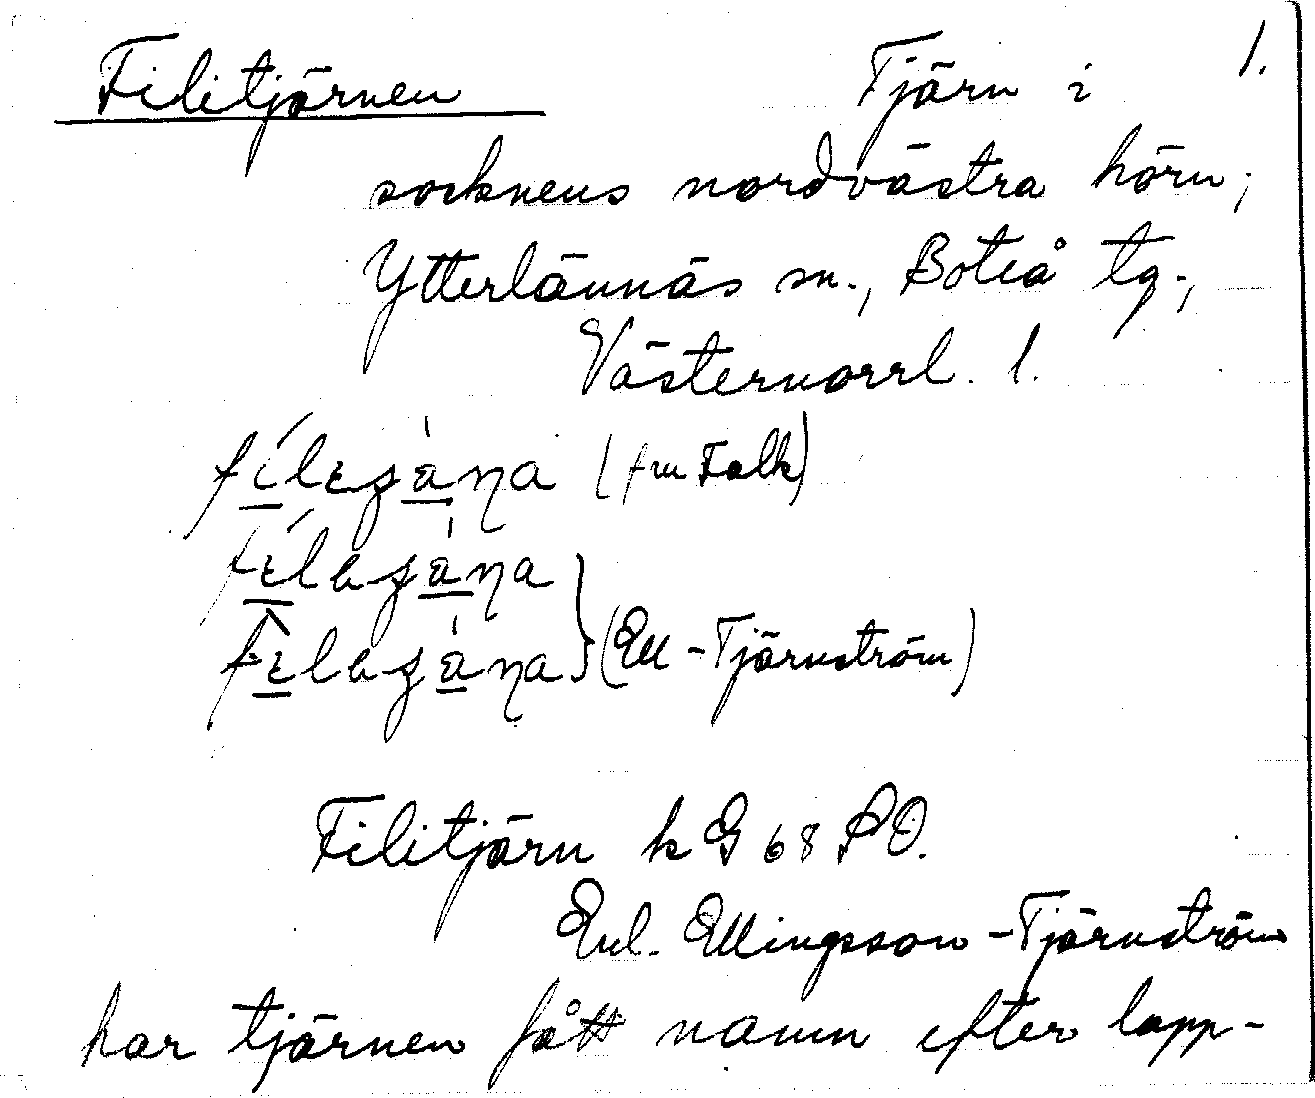 Filitjärnen Tjärn i 1.
socknens nordvästra hörn,
Ytterlännäs sn., Boteå tg.,
Västernorrl. l.
(fru Falk)
(Ell-Tjärnström)
Filitjärn k G 68 SO.
Enl. Ellingsson-Tjärnström
har tjärnen fått namn efter lapp-